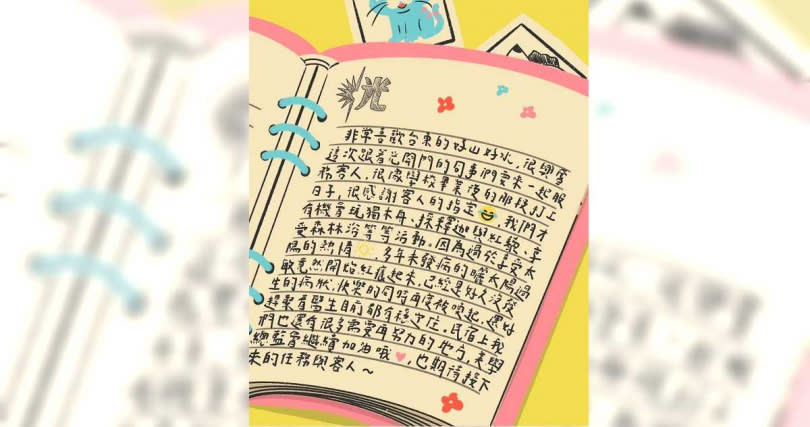 悅
非常喜歡台東的好山好水,很興奮
這次跟著忘開門的同事們來一起服
務客人,很像學校畢業後的那段打工
日子,很感謝客人的指定😄 我們才
有機會玩獨木舟、採釋迦與紅藜、享
受森林浴等等活動。因為過於享受太
陽的熱情☀️ 多年未發病的曬太陽過
敏竟然開始紅癢起來,已經是好久沒發
生的病狀,快樂的同時再度被喚起,還好
趕緊看醫生目前都有穩定住。民宿上我
們也還有很多需要再努力的地方,美學
總監會繼續加油哦💗,也期待接下
來的任務與客人~